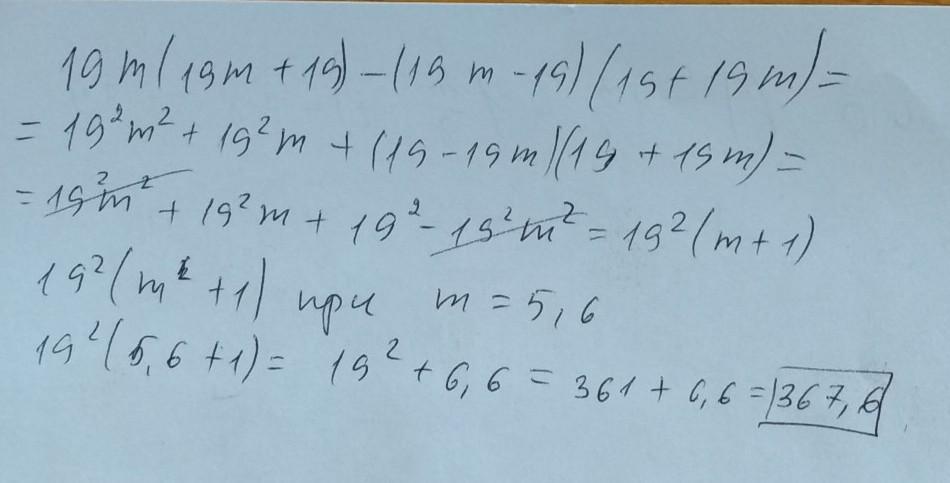 19m(19m+19)-(19m-19)(19+19m)=
=19²m²+19²m+(19-19m)(19+19m)=
=19²m²+19²m+19²-19²m²=19²(m+1)
19²(m+1) при m=5,6
19²(5,6+1)=19²+6,6=361+6,6=367,6